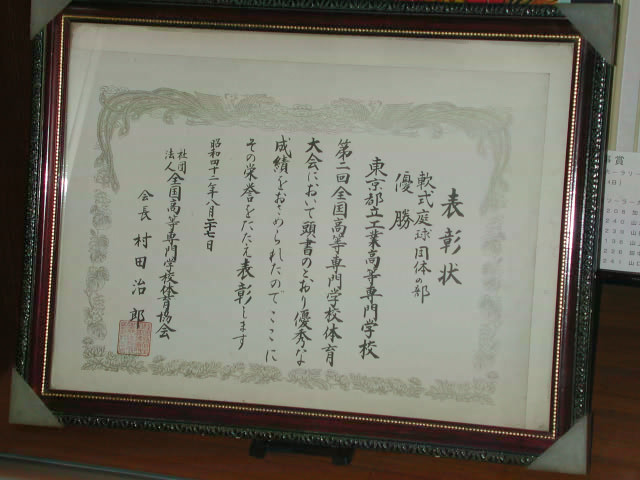 表彰状
軟式庭球団体の部
優勝
東京都立工業高等専門学校
第二回全国高等専門学校体育
大会において頭書のとおり優秀な
成績をおさめられたのでここに
その栄誉をたたえ表彰します
昭和四十二年八月二十一日
社団法人全国高等専門学校体育協会
会長 村田治郎